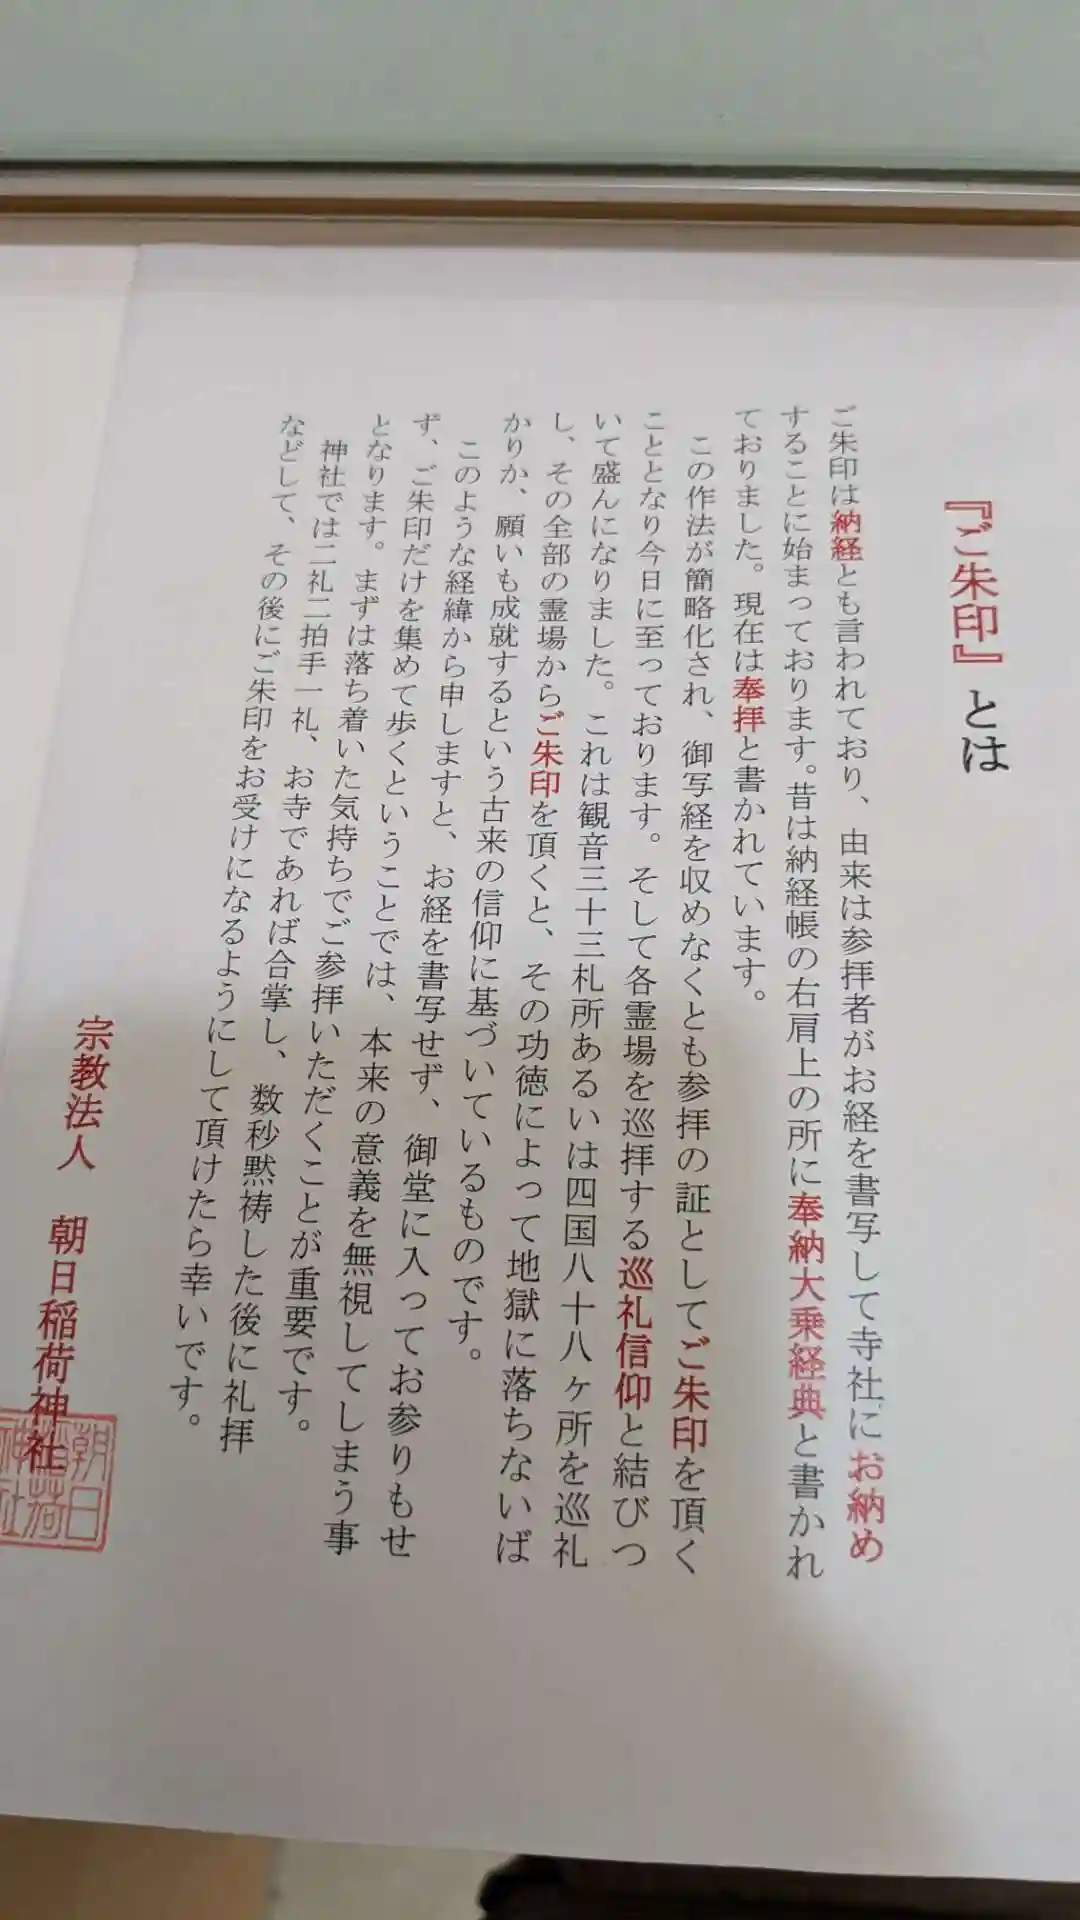 『ご朱印』とは
ご朱印は納経とも言われており、由来は参拝者がお経を書写して寺社にお納め
することに始まっております。昔は納経帳の右肩上の所に奉納大乗経典と書かれ
ておりました。現在は奉拝と書かれています。
この作法が簡略化され、御写経を収めなくとも参拝の証としてご朱印を頂く
こととなり今日に至っております。そして各霊場を巡拝する巡礼信仰と結びつ
いて盛んになりました。これは観音三十三札所あるいは四国八十八ヶ所を巡礼
し、その全部の霊場からご朱印を頂くと、その功徳によって地獄に落ちないば
かりか、願いも成就するという古来の信仰に基づいているものです。
このような経緯から申しますと、お経を書写せず、御堂に入ってお参りもせ
ず、ご朱印だけを集めて歩くということでは、本来の意義を無視してしまう事
となります。まずは落ち着いた気持ちでご参拝いただくことが重要です。
神社では二礼二拍手一礼、お寺であれば合掌し、数秒黙祷した後に礼拝
などして、その後にご朱印をお受けになるようにして頂けたら幸いです。
宗教法人 朝日稲荷神社
朝日
稲荷
神社